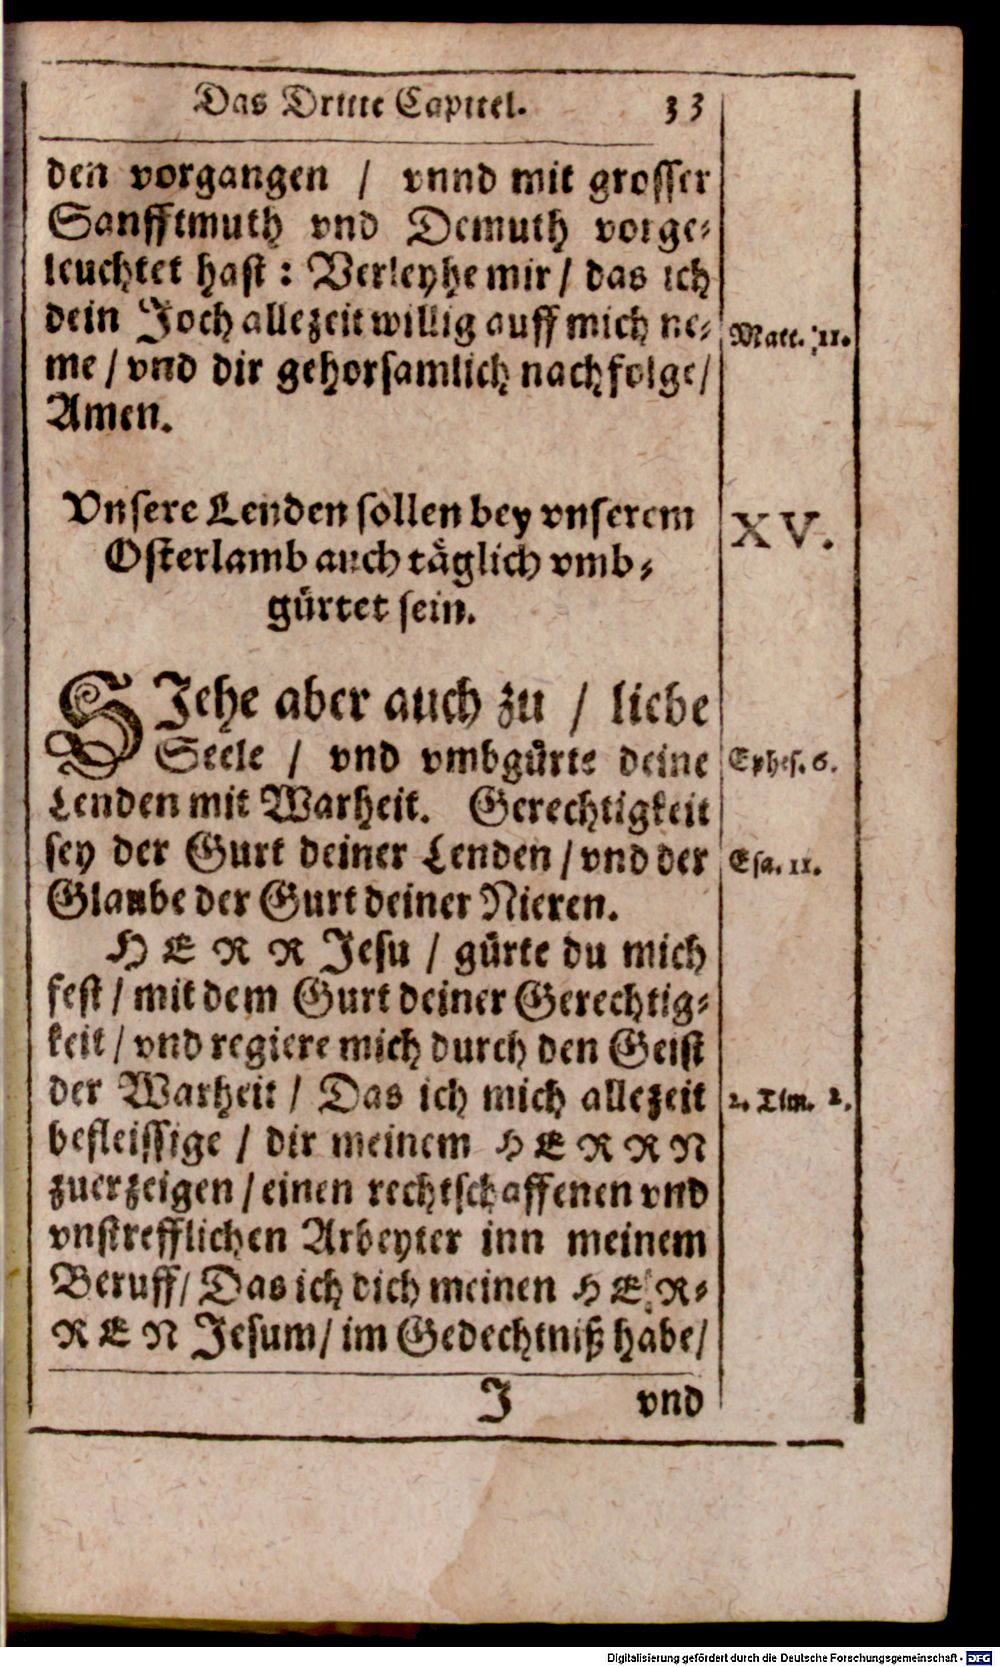 Das Dritte Capittel. 33
den vorgangen / vnnd mit grosser
Sanfftmuth vnd Demuth vorge-
leuchtet hast : Verleyhe mir / das ich
dein Joch allezeit willig auff mich ne-
Matt. 11.
me / vnd dir gehorsamlich nachfolge /
Amen.
Vnsere Lenden sollen bey vnserem
XV.
Osterlamb auch täglich vmb-
gürtet sein.
SIehe aber auch zu / liebe
Seele / vnd vmbgürte deine
Ephes. 6.
Lenden mit Warheit. Gerechtigkeit
sey der Gurt deiner Lenden / vnd der
Esa. 11.
Glaube der Gurt deiner Nieren.
HERR Jesu / gürte du mich
fest / mit dem Gurt deiner Gerechtig-
keit / vnd regiere mich durch den Geist
der Warheit / Das ich mich allezeit
2. Tim. 2.
befleissige / dir meinem HERRN
zuerzeigen / einen rechtschaffenen vnd
vnstrefflichen Arbeyter inn meinem
Beruff / Das ich dich meinen HER-
REN Jesum / im Gedechtniß habe /
J vnd
Digitalisierung gefördert durch die Deutsche Forschungsgemeinschaft - DFG